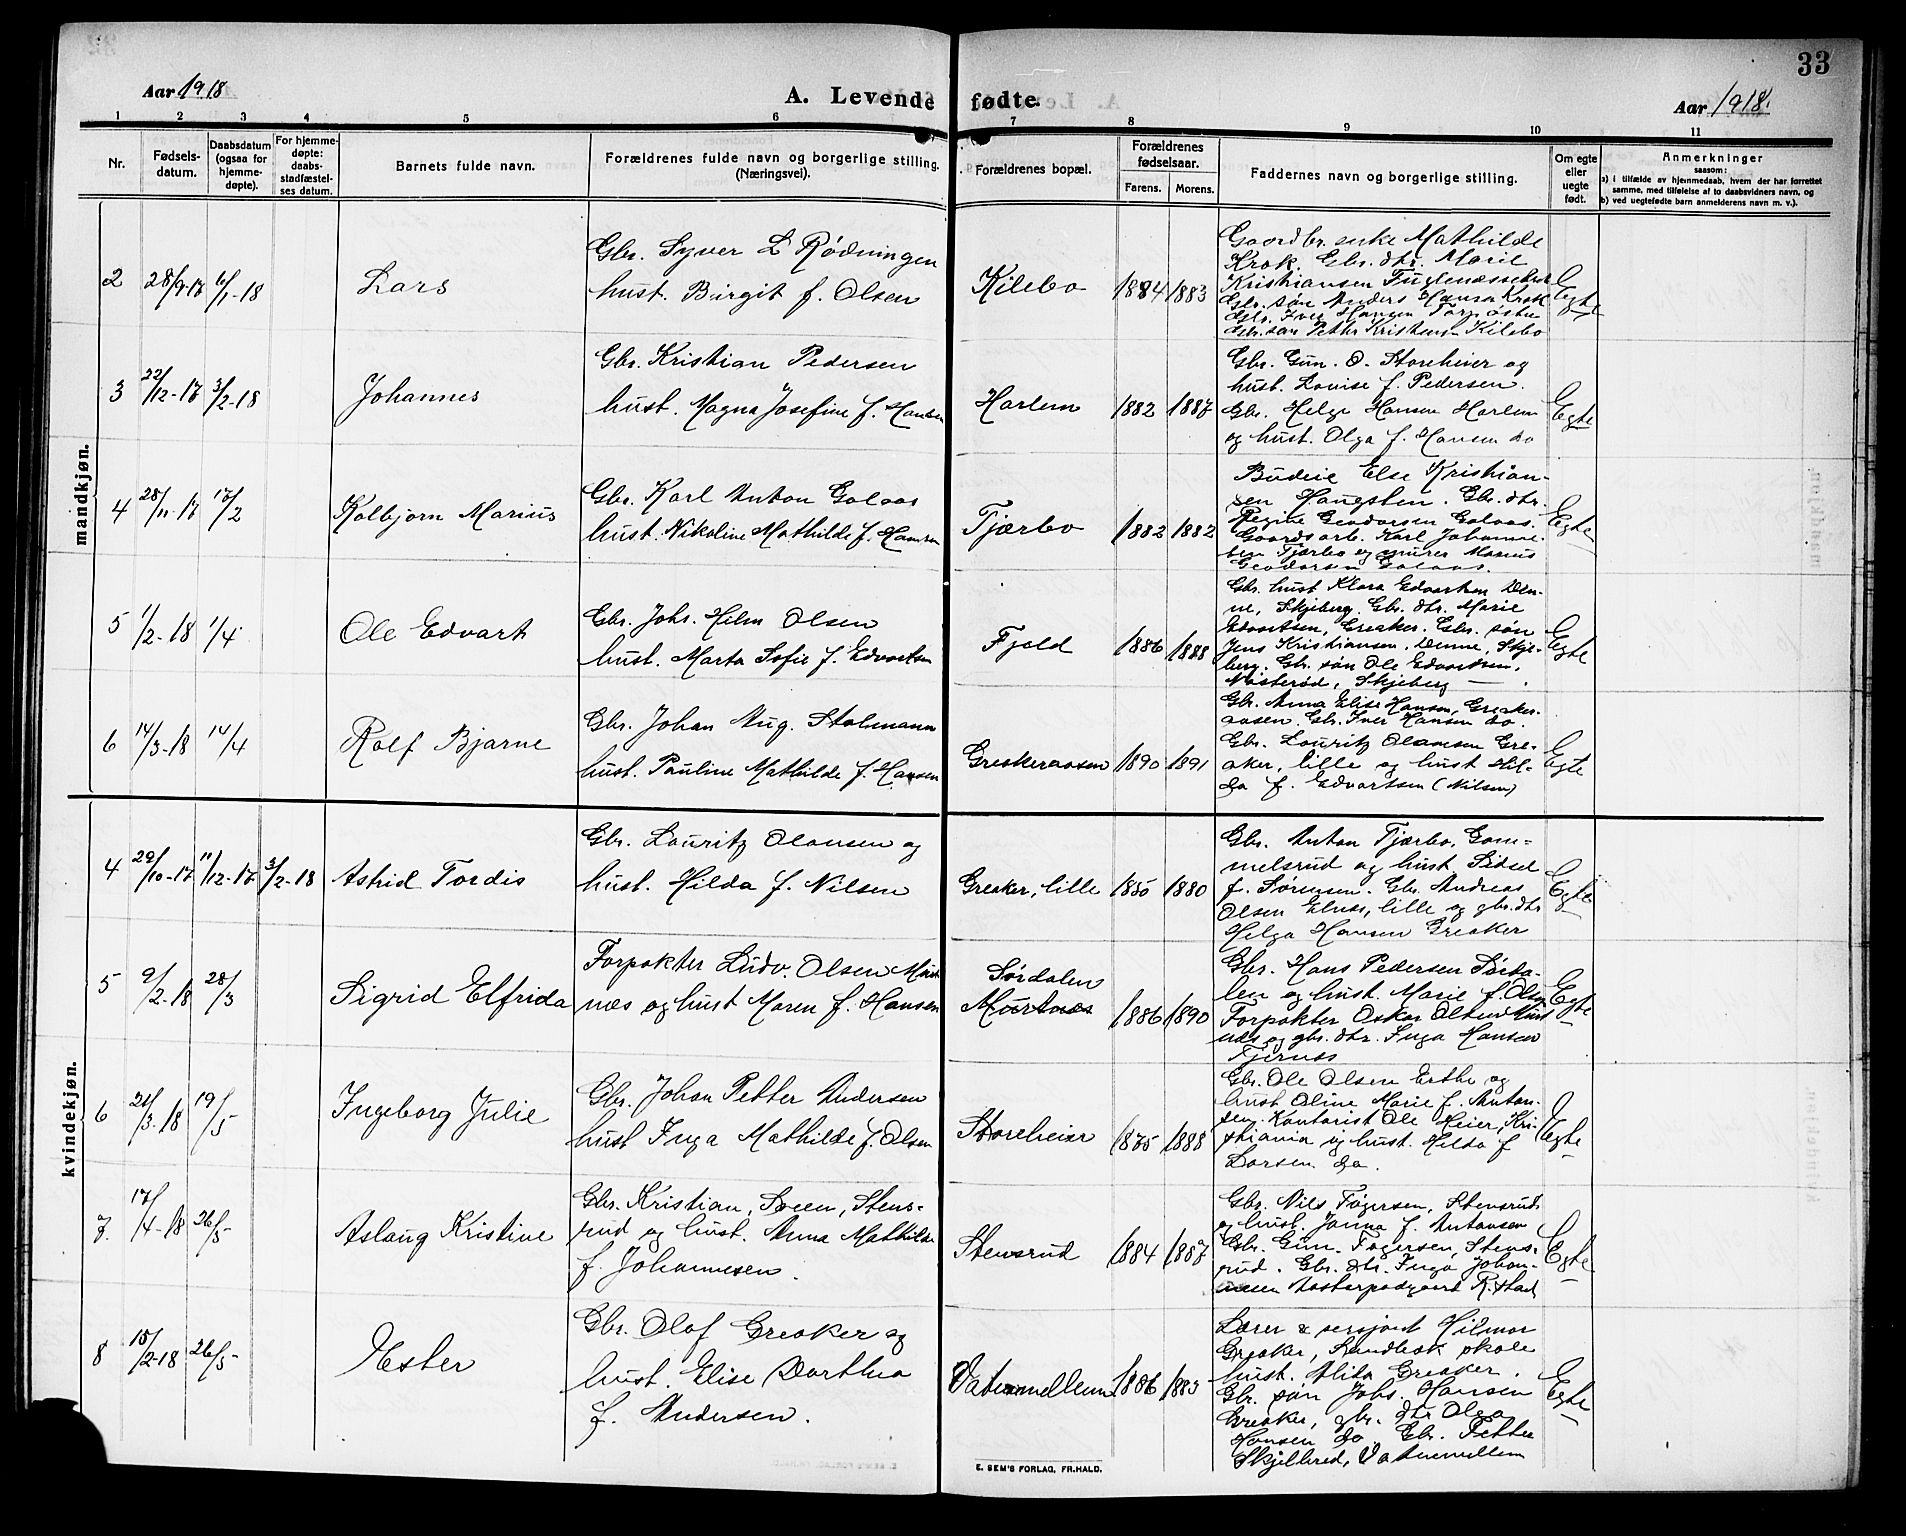 33
Aar 1918
A. Levende fødte.
Aar 1918.
1 2 3 4 5 6 7 8 9 10 11
Nr.
Fødsels-
datum.
Daabsdatum
(ogsaa for
hjemme-
døpte).
For hjemme-
døpte:
daabs-
stadfæstel-
ses datum.
Barnets fulde navn.
Forældrenes fulde navn og borgerlige stilling.
(Næringsvei).
Forældrenes bopæl.
Forældrenes
fødselsaar.
Farens. Morens.
Faddernes navn og borgerlige stilling.
Om egte
eller
uegte
født.
Anmerkninger
saasom:
a) i tilfælde av hjemmedaab, hvem der har forrettet
samme, med tilføielse af to daabsvidners navn, og
b) ved uegtefødte barn anmelderens navn m. v.).
mandkjøn.
2 28/9-17 6/1-18 Lars
Gbr. Syver L Rødningen
hust. Birgit f. Olsen
Kilebo 1884 1883
Gaardbr. enke Mathilde
Krok. Gbr. dtr. Marie
Kristiansen
Gbr. søn Anders Hansen Krok
Gbr. Iver Hansen Torp østre
Gbr. søn Petter Kristensen Kilebo
Egte
3 22/12-17 3/2-18 Johannes
Gbr. Kristian Pedersen
hust. Magna Josefine f. Hansen
Harlem 1882 1887
Gbr. Gun. O. Storeheier og
hust. Louise f. Pedersen.
Gbr. Helge Hansen Harlem
og hust. Olga f. Hansen do
Egte
4 28/11-17 17/2 Kolbjørn Marius
Gbr. Karl Anton Golaas
hust. Nikoline Mathilde f. Hansen
Tjærbo 1882 1882
Budeie Else Kristian-
sen Haugsten. Gbr. dtr.
Regine Geodorsen Golaas.
Gaardsarb. Karl Johanne-
sen Tjærbo og murer Marius
Geodorsen Golaas.
Egte
5 1/2-18 1/4 Ole Edvart
Gbr. Johs. Hilm Olsen
hust. Marta Sofie f. Edvartsen
Fjeld 1886 1888
Gbr. hust Klara Edvartsen Den-
ne, Skjeberg. Gbr. dtr. Marie
Edvartsen, Greaker. Gbr. søn
Jens Kristiansen, Denne, Skje-
berg. Gbr. søn Ole Edvardsen,
Nøsterød, Skjeberg —.
Egte
6 14/3-18 14/4 Rolf Bjarne
Gbr. Johan Aug. Stolmann
hust. Pauline Mathilde f. Hansen
Greakeraasen 1890 1891
Gbr. Anna Elise Hansen, Greaker-
aasen. Gbr. Iver Hansen do.
Gbr. Louritz Olausen Gre-
aker, lille og hust Hil-
da f. Edvartsen (Nilsen)
Egte
kvindekjøn.
4 29/10-17 11/12-17 3/2-18 Astrid Tordis
Gbr. Louritz Olausen og
hust. Hilda f. Nilsen
Greaker, lille 1880
Gbr. Anton Tjærbo, Gam-
melsrud og hust. Sidsel
f. Sørensen. Gbr. Andreas
Olsen Elnes, lille og gbr. dtr
Helga Hansen Greaker
Egte
5 9/2-18 28/3 Sigrid Elfrida
Forpakter Ludv. Olsen Murt-
næs og hust Maren f. Hansen
Sørdalen
Murtnæs 1886 1890
Gbr. Hans Pedersen Sørda-
len og hust. Marie f. Olsen
Forpakter Oskar Olsen Murt
næs og gbr. dtr. Inga Hansen
Tjernæs
Egte
6 21/3-18 19/5 Ingeborg Julie
Gbr. Johan Petter Andersen
hust Inga Mathilde f. Olsen
Storeheier 1875 1888
Gbr. Ole Olsen Erthe og
hust Oline Marie f. Anton-
sen. Kontorist Ole Heier, Kri-
stiania og hust. Hilda f
Larsen do.
Egte
7. 17/4-18 26/5 Aslaug Kristine
Gbr. Kristian, Sveen, Stens-
rud og hust. Anna Mathilde
f. Johannesen.
Stensrud 1884 1887
Gbr. Nils Tøgersen, Stensrud
og hust. Janna f. Antonsen
Gbr. Gun. Tøgersen, Stens-
rud. Gbr. dtr. Inga Johan-
nesen
Egte
8 15/2-18 26/5 Hester
Gbr. Olaf Greaker og
hust. Elise Dorthea
f. Andersen.
Vatvedlem 1886 1883
Lærer & sersjant Hilmar
Greaker, Sandbæk skole
hust. Alida Greaker.
Gbr. søn Johs. Hansen
Greaker, gbr. dtr Olga
Hansen do. Gbr. Petter
Skjellerød, Vatvedlem
Egte
E. SEM'S FORLAG, FR.HALD.